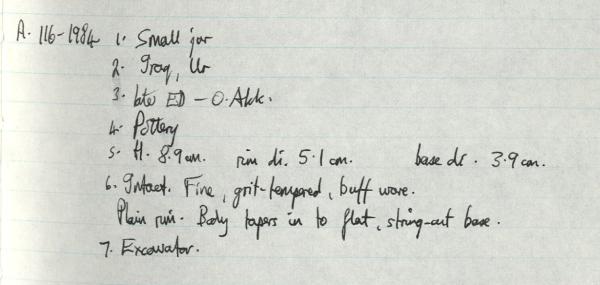 A. 116-1984 1. Small jar
2. Iraq, Ur
3. late ED - O. Akk.
4. Pottery
5. H. 8.9 cm. rim di. 5.1 cm. base di. 3.9 cm.
6. Intact. Fine, grit-tempered, buff ware.
Plain rim. Body tapers in to flat, string-cut base.
7. Excavator.